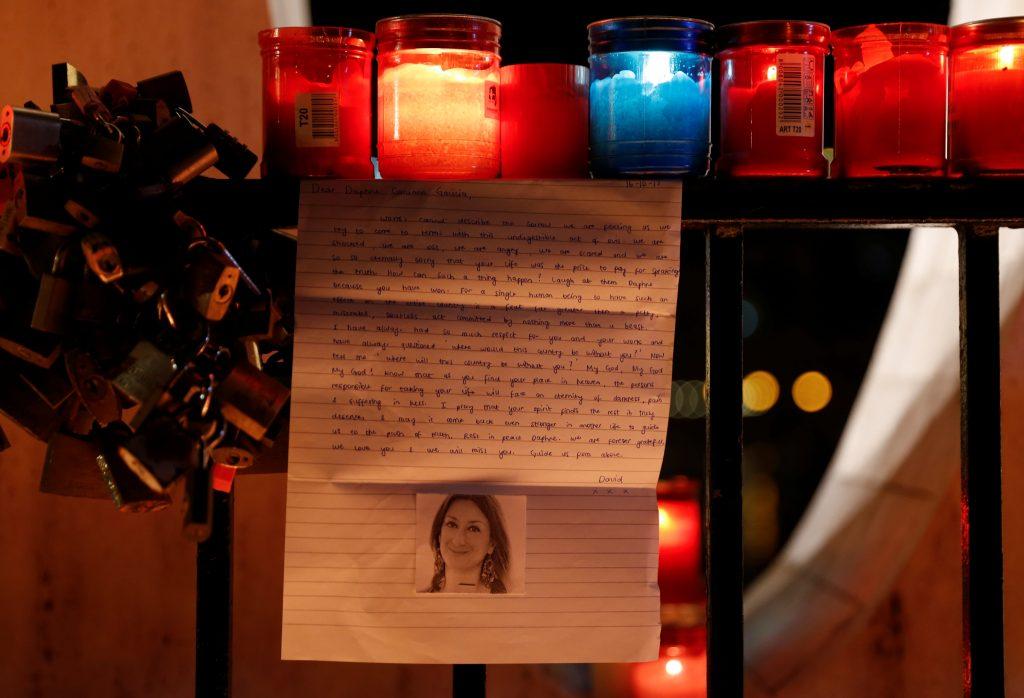 T20
ART T20
16-10-17
Dear Daphne Caruana Galizia,
Words cannot describe the sorrow we are feeling as we
try to come to terms with this undigestible act of evil. We are
shocked, we are lost, we are angry, we are scared and we are
so so eternally sorry that your life was the price to pay for speaking
the truth. How can such a thing happen? Laugh at them Daphne
because you have won. For a single human being to have such an
effect on the entire country is a feat far greater than a petty,
miserable, soulless act committed by nothing more than a beast.
I have always had so much respect for you and your work and
have always questioned 'where would this country be without you?' Now
tell me 'where will this country be without you?' My God, My God
My God! Know that as you find your place in heaven the persons
responsible for taking your life will face an eternity of darkness, pain
& suffering in hell. I pray that your spirit finds the rest it truly
deserves & may it come back even stronger in another life to guide
us to the path of truth. Rest in peace Daphne. We are forever grateful,
we love you & we will miss you. Guide us from above.
David
x x x